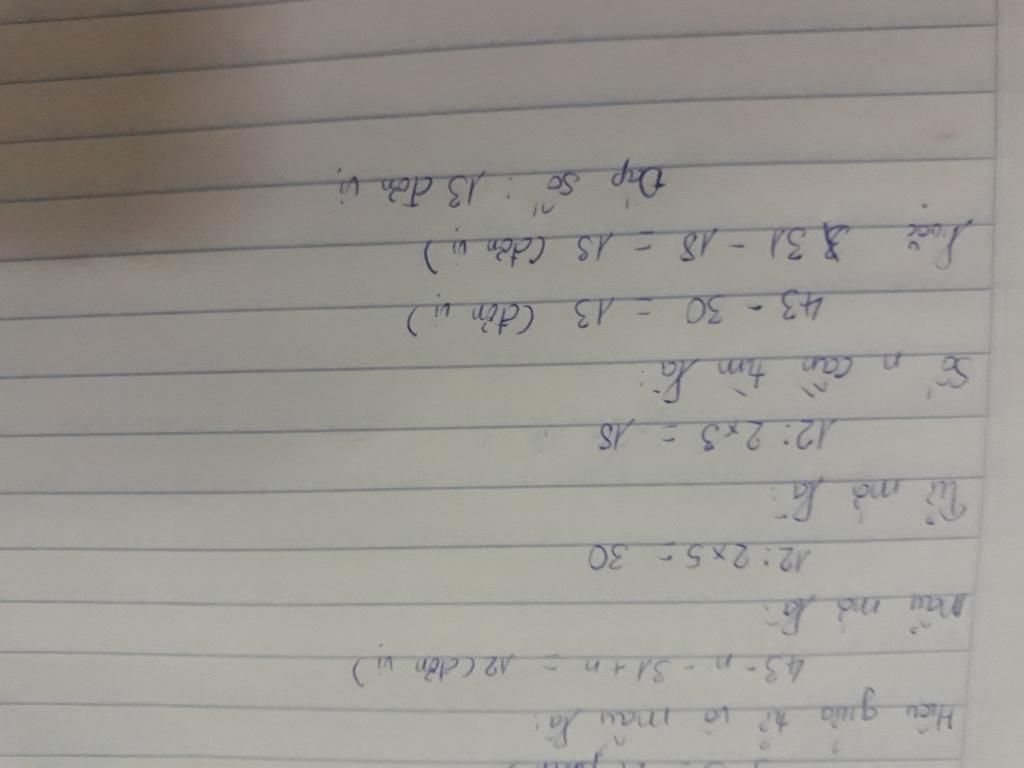 Hiệu giữa tử và mẫu là:
43 - n - 31 + n = 12 (đơn vị)
Mẫu mới là:
12 : 2 x 5 = 30
Tử mới là:
12 : 2 x 3 = 18
Số n cần tìm là:
43 - 30 = 13 (đơn vị)
hoặc 31 - 18 = 13 (đơn vị)
Đáp số: 13 đơn vị